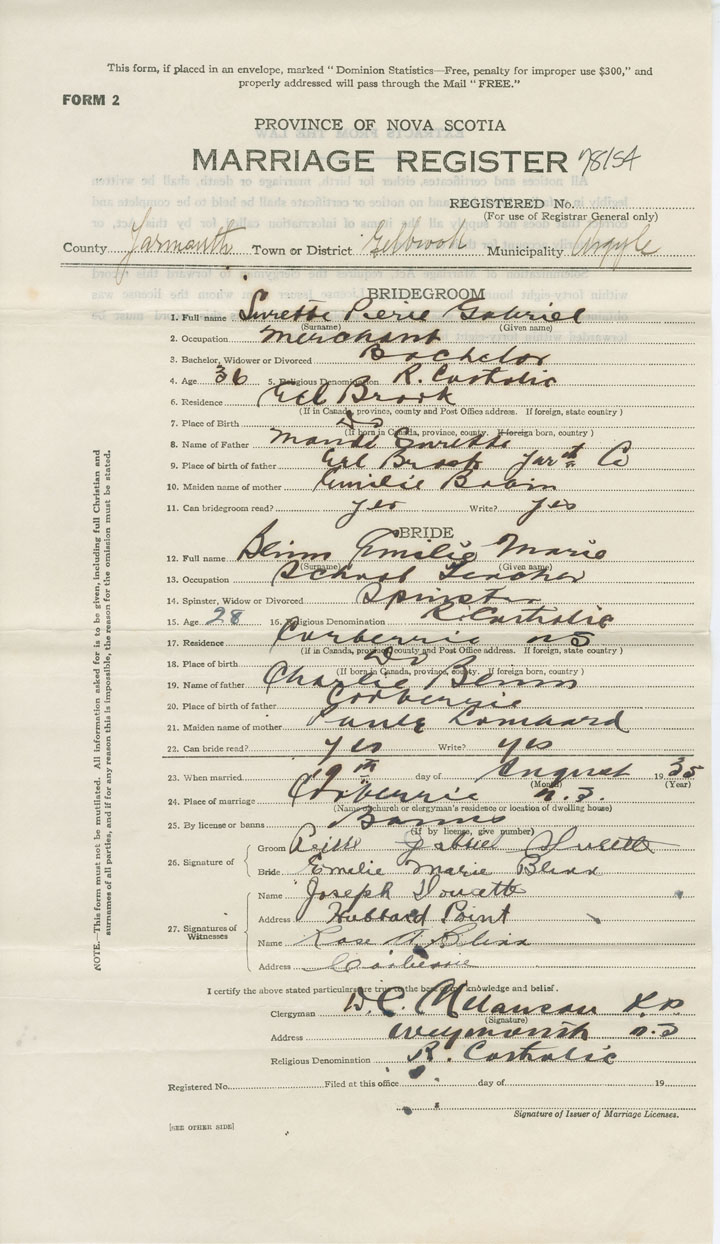 This form, if placed in an envelope, marked "Dominion Statistics—Free, penalty for improper use $300," and
properly addressed will pass through the Mail "FREE."
FORM 2
PROVINCE OF NOVA SCOTIA
MARRIAGE REGISTER 78154
REGISTERED No.
(For use of Registrar General only)
County Yarmouth Town or District Eelbrook Municipality Argyle
BRIDEGROOM
1. Full name Surette Pierie Gabriel
(Surname) (Given name)
2. Occupation Merchant
3. Bachelor, Widower or Divorced Bachelor
4. Age 36 5. Religious Denomination R. Catholic
6. Residence Eel Brook
(If in Canada, province, county and Post Office address. If foreign, state country)
7. Place of Birth Do
(If born in Canada, province, county. If foreign born, country)
8. Name of Father Mandé Surette
9. Place of birth of father Eel Brook Yarth Co
10. Maiden name of mother Emilie
11. Can bridegroom read? yes Write? yes
BRIDE
12. Full name Blinn Emilie Marie
(Surname) (Given name)
13. Occupation School Teacher
14. Spinster, Widow or Divorced Spinster
15. Age 28 16. Religious Denomination R. Catholic
17. Residence Corberrie N S
(If in Canada, province, county and Post Office address. If foreign, state country)
18. Place of birth Do
(If born in Canada, province, county. If foreign born, country)
19. Name of father Charlie Blinn
20. Place of birth of father Corberrie
21. Maiden name of mother Lombard
22. Can bride read? yes Write? yes
23. When married 19th day of August 1935
(Month) (Year)
24. Place of marriage Corberrie N.S.
(Name of church or clergyman's residence or location of dwelling house)
25. By license or banns Banns
(If by license, give number)
26. Signature of
Groom Gabriel Surette
Bride Emilie Marie Blinn
27. Signatures of Witnesses
Name Joseph Doucette
Address Hubbard Point
Name Rose A. Blinn
Address Corberrie
I certify the above stated particulars are true to the best of my knowledge and belief.
Clergyman D. C. Melanson P.P.
(Signature)
Address Weymouth N.S
Religious Denomination R. Catholic
Registered No. Filed at this office day of 19
Signature of Issuer of Marriage Licenses.
[SEE OTHER SIDE]
NOTE.—This form must not be mutilated. All information asked for is to be given, including full Christian and
surnames of all parties, and if for any reason this is impossible, the reason for the omission must be stated.